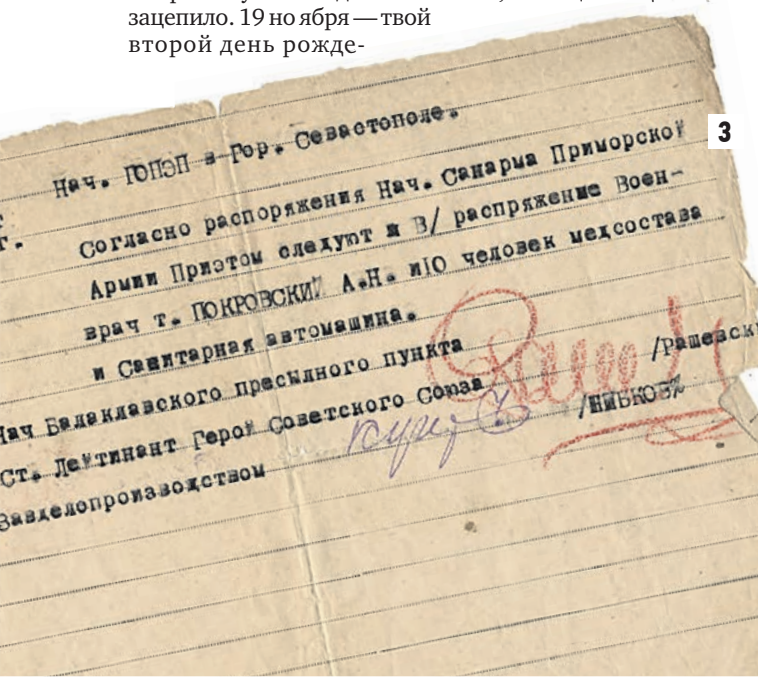 зацепило. 19 но ября — твой
второй день рожде-
3
Нач. ГОПЭП в Гор. Севастополе.
г. Согласно распоряжения Нач. Санарма Приморской
Армии Приэтом следуют в В/ распряжение Воен-
врач т. ПОКРОВСКИЙ А.Н. и10 человек медсостава
и Санитарная автомашина.
Нач Балаклавского пресылного пункта
Ст. Лейтинант Герой Советского Союза /Рашевск
Завделопроизводством